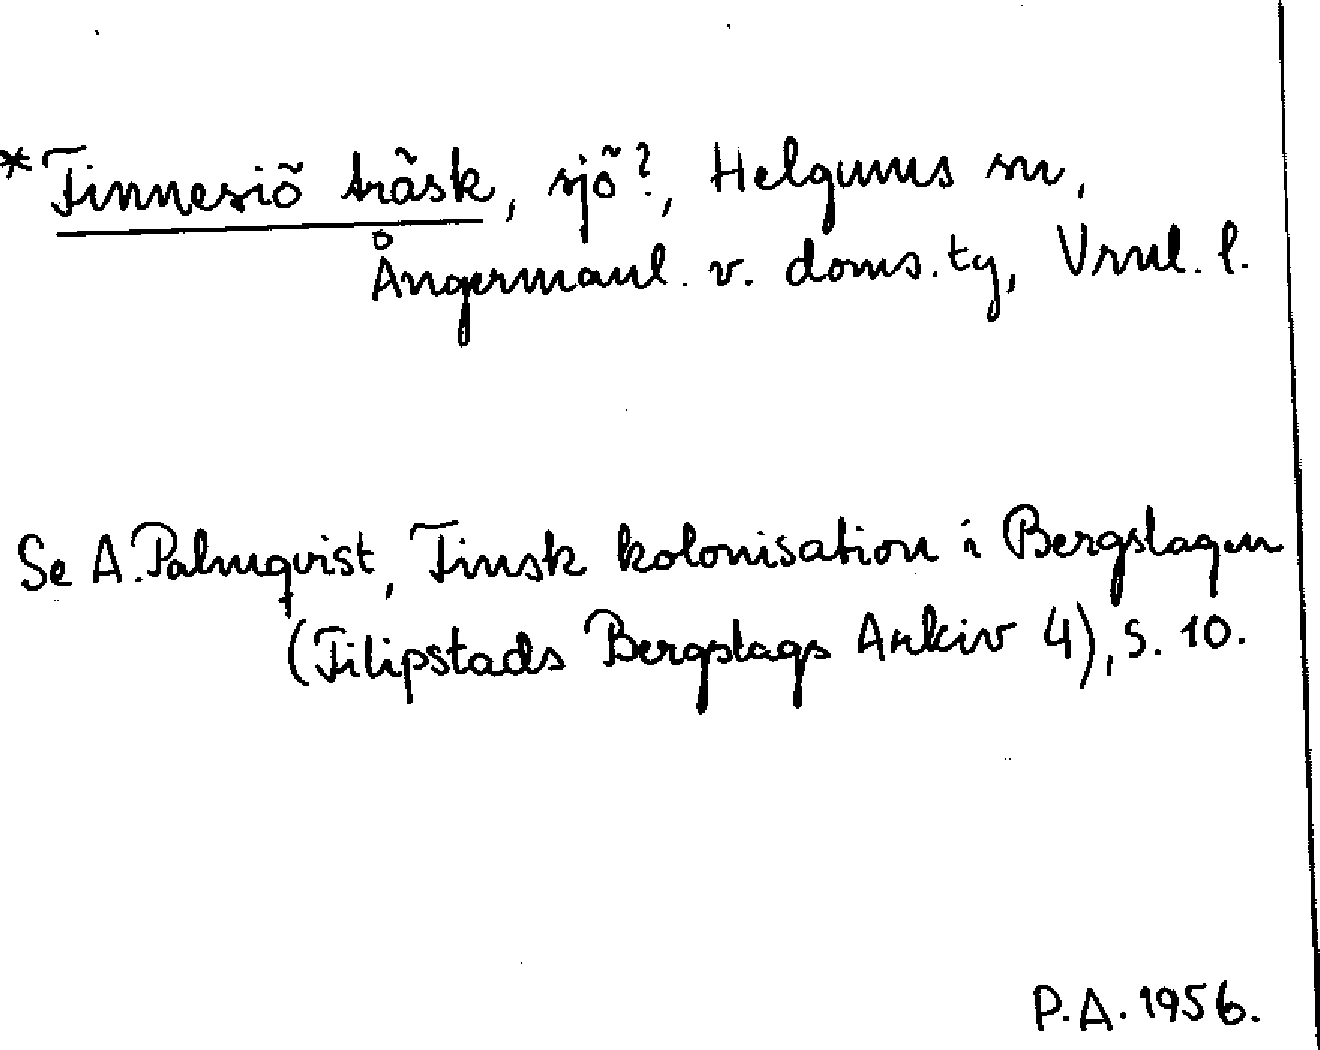 *Finnesiö träsk, sjö?, Helgums sn,
Ångermanl. v. doms. tg, Vrnl. l.
Se A. Palmqvist, Finsk kolonisation i Bergslagen
(Filipstads Bergslags Arkiv 4), s. 10.
P.A. 1956.